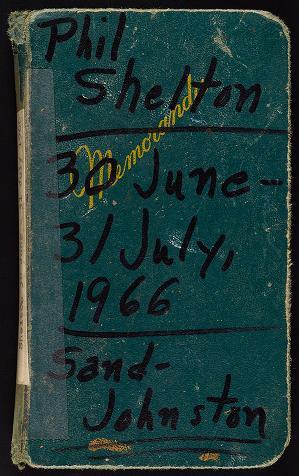 Phil
Shelton
Memoranda
30 June -
31 July,
1966
Sand-
Johnston